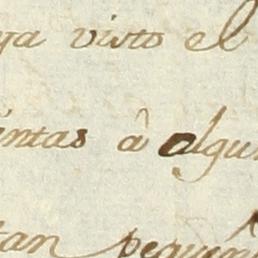 ya visto el
intas â algun
tan pequeñ